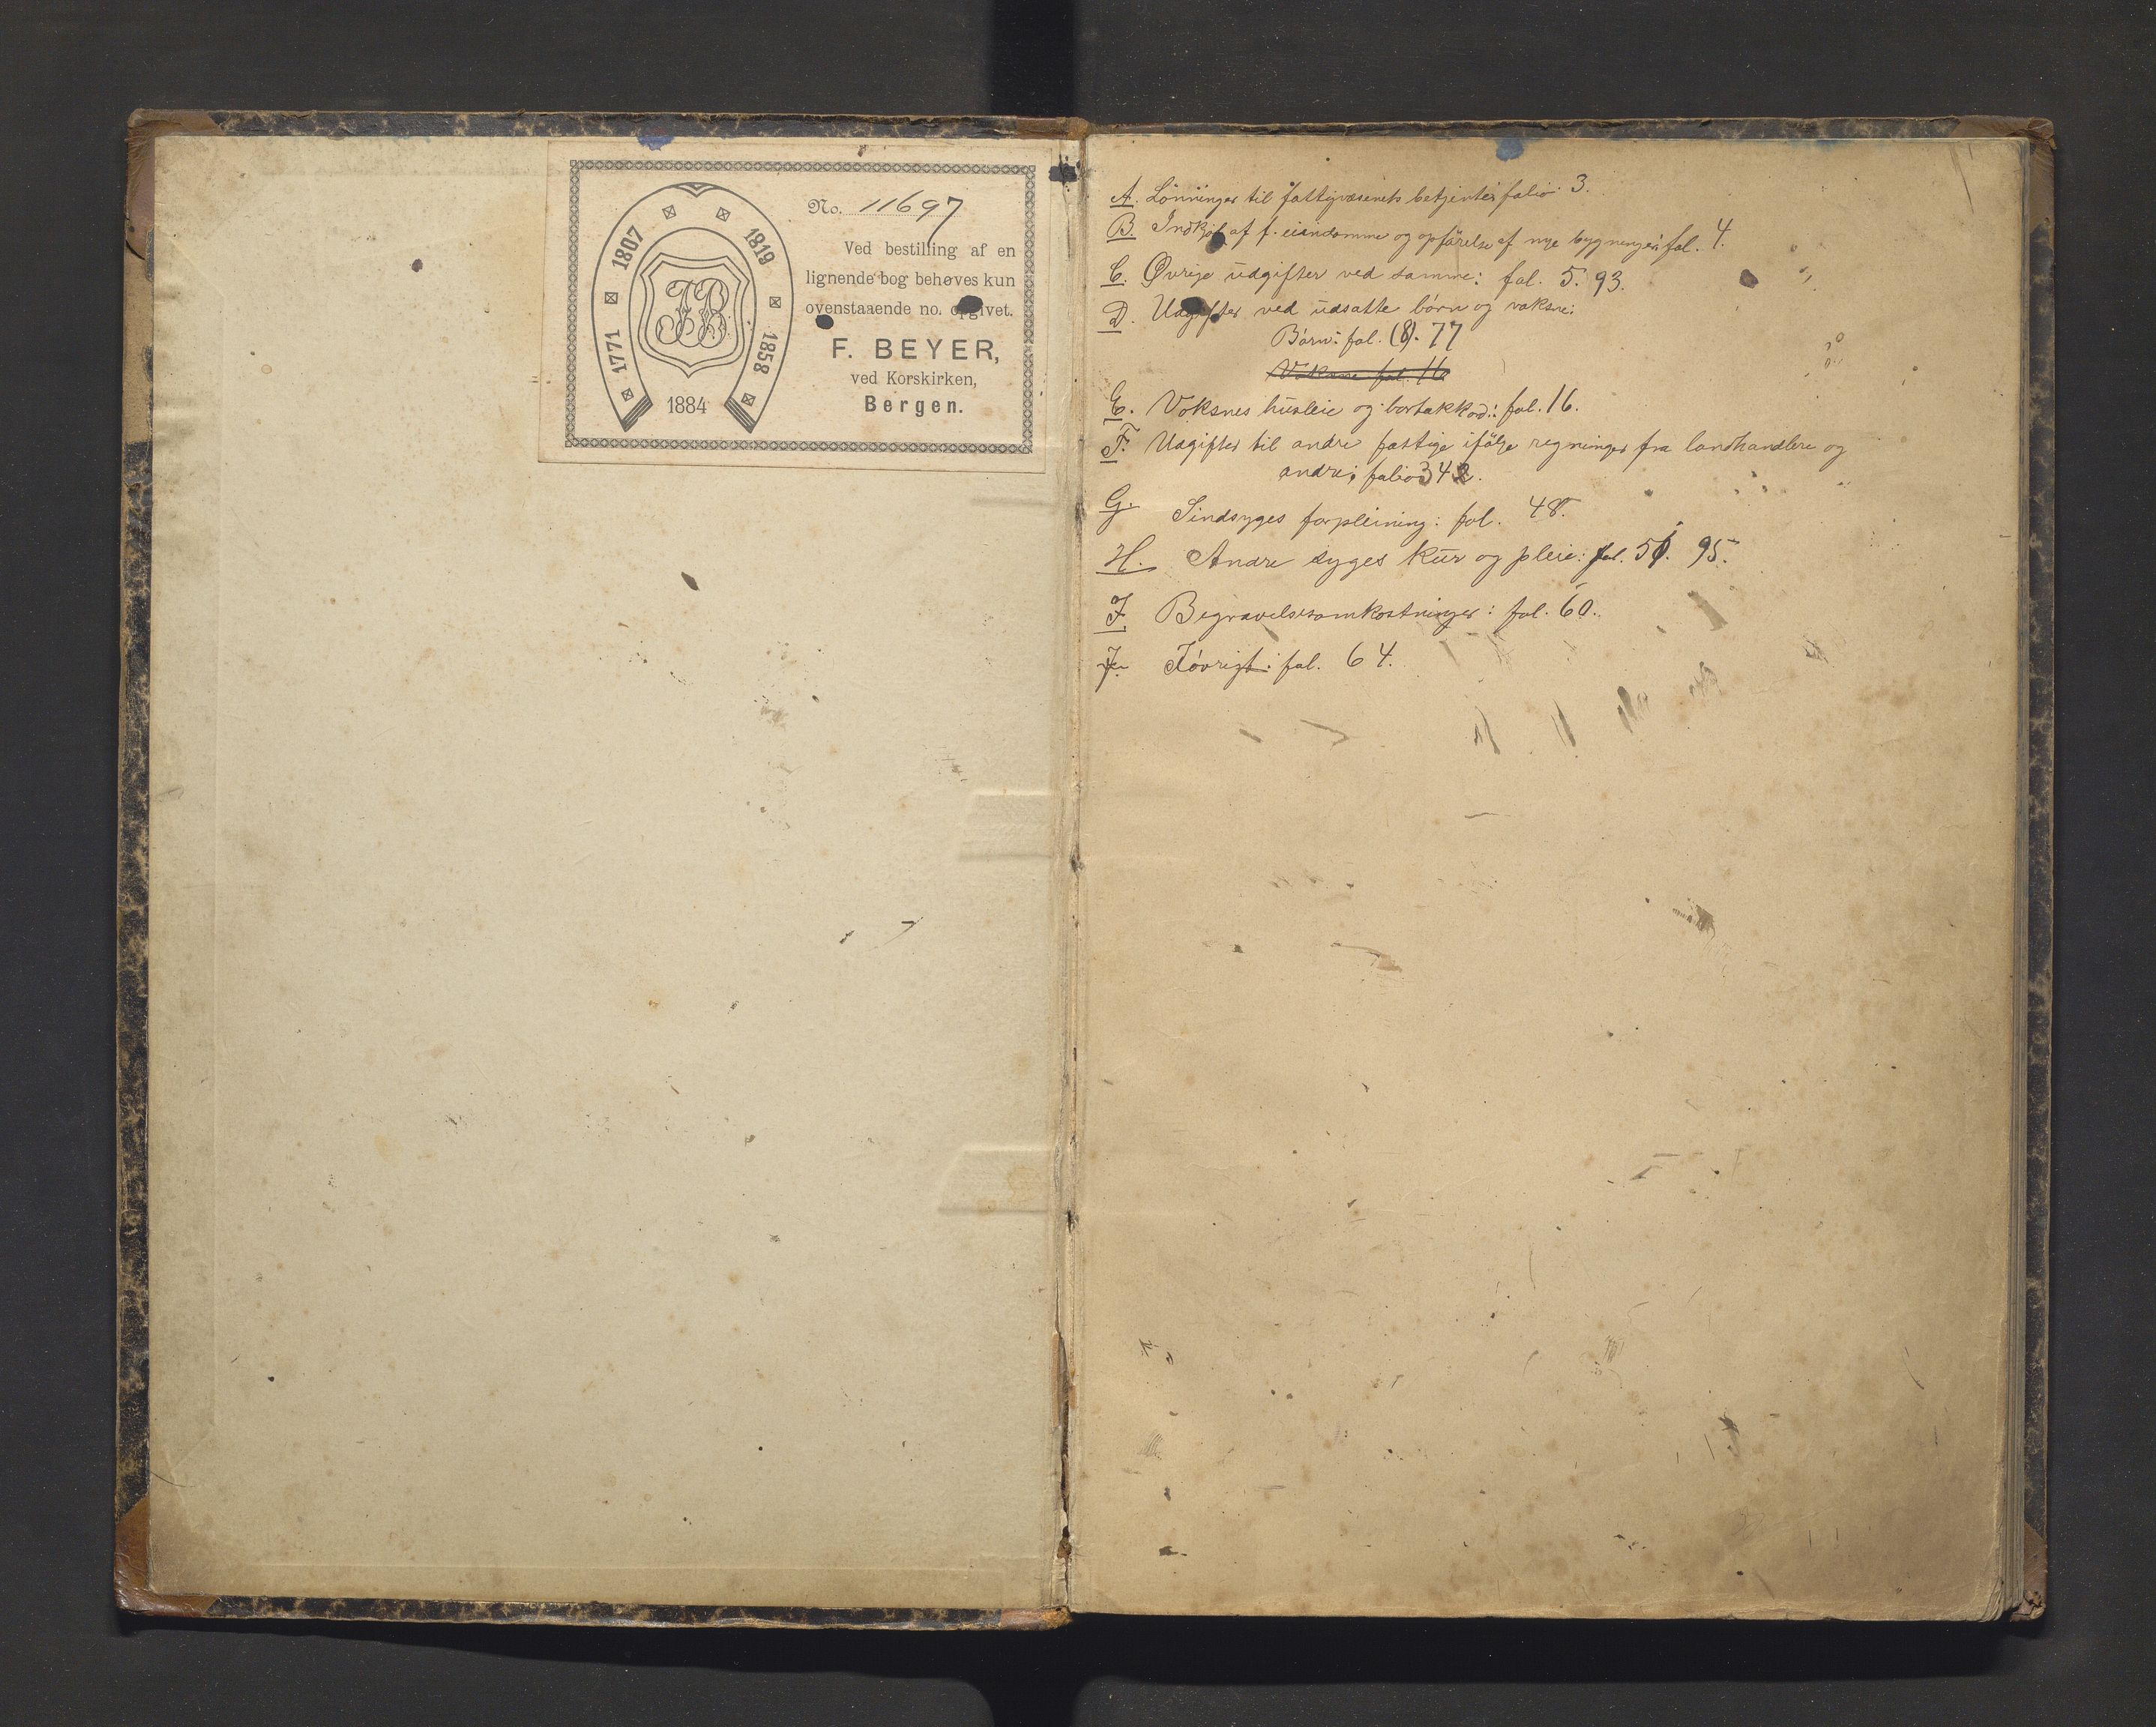 1771 1807 1819 1858
FB
1884
No. 11697
Ved bestilling af en
lignende bog behøves kun
ovenstaaende no. opgivet.
F. BEYER,
ved Korskirken,
Bergen.
A. Lönninger til fattigvæsenets betjenter folio 3.
B. Indkjøb af f. eiendomme og opförelse af nye bygninger: fol. 4.
C. Øvrige udgifter ved samme: fol. 5. 93.
D. Udgifter ved udsatte börn og voksne:
Börn: fol. (8). 77
Voksne fol. 16
E. Voksnes husleie og bortakkord.: fol. 16.
F. Udgifter til andre fattige ifölge regninger fra landhandlere og
andre; folio
G. Sindsyges forpleining: fol. 48.
H. Andre syges kur og pleie: fol. 95.
I. Begravelsesomkostninger: fol. 60.
J. Iøvrigt: fol. 64.